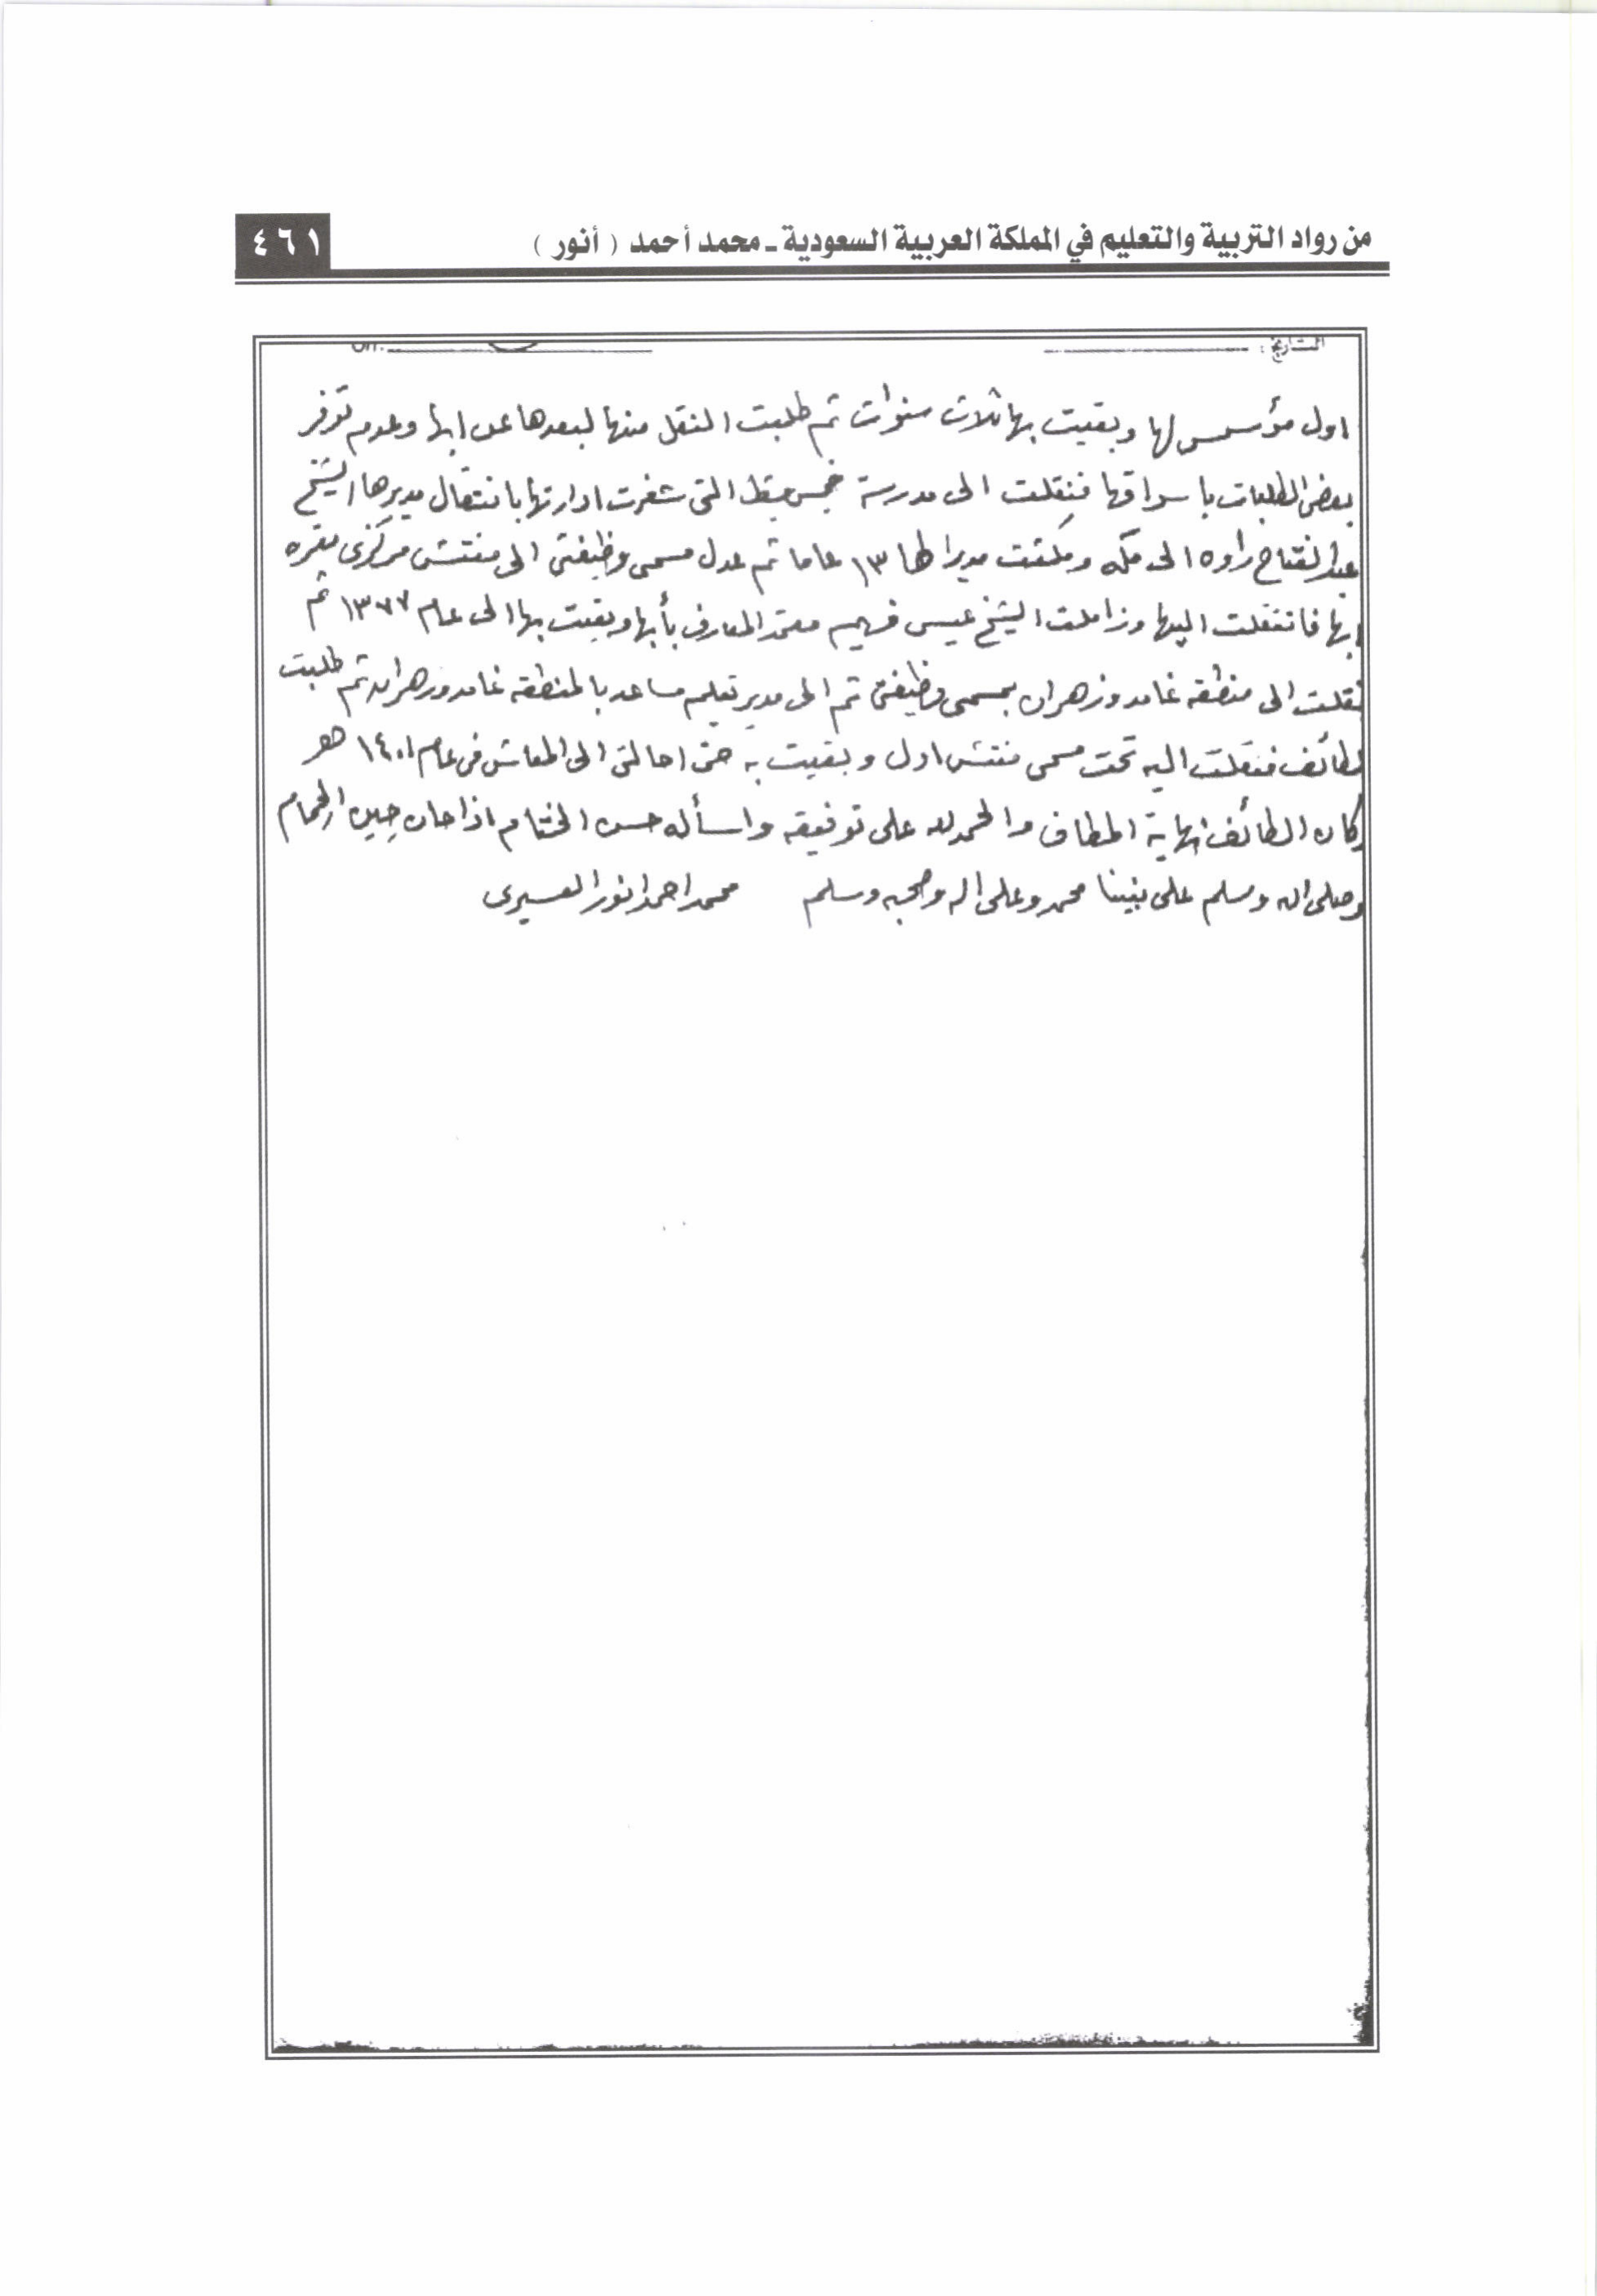 من رواد التربية والتعليم في المملكة العربية السعودية ـ محمد أحمد ( أنور )
٤٦١
التاريخ :
اول مؤسس لها وبقيت بها ثلاث سنوات ثم طلبت النقل منها لبعدها عن ابها وعدم توفر
بعض الطلبات باسواقها فنقلت الى مدرسة خميس مشيط التى شغرت ادارتها بانتقال مديرها الشيخ
عبدالفتاح راوه الى مكه ومكثت مديرا لها ١٣ عاما ثم عدل مسمى وظيفتى الى مفتش مركزى مقره
ابها فانتقلت اليها وزاملت الشيخ عيسى فهيم معتمد المعارف بأبها وبقيت بها الى عام ١٣٧٧ ثم
نقلت الى منطقه غامد وزهران بمسمى وظيفتى ثم الى مدير تعليم مساعد بالمنطقه غامد وزهران ثم طلبت
لطائف فنقلت اليه تحت مسمى مفتش اول وبقيت به حتى احالتى الى المعاش فى عام ١٤٠١ هـ
وكان الطائف نهاية المطاف والحمدلله على توفيقه واسأله حسن الختام اذا حان حِين الحِمام
وصلى الله وسلم على نبينا محمد وعلى اله وصحبه وسلم محمد احمد انور العسيرى